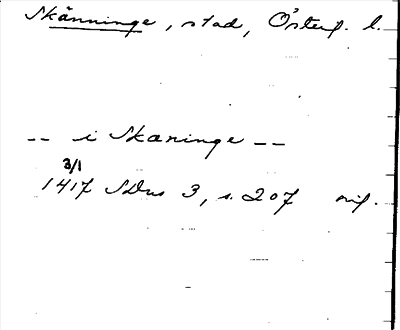 Skänninge, stad, Österg. l.
-- i Skæninge --
3/1
1417 SDns 3, s. 207 orig.